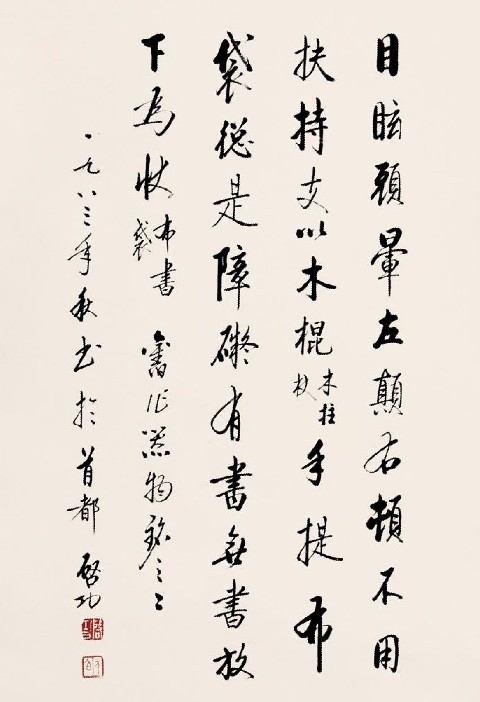 目眩頭暈左顛右頓不用
扶持支以木棍木拄杖手提布
袋總是障礙有書無書放
下為杖布書袋 舊作器物銘之二
一九八三年秋书於首都 啟功